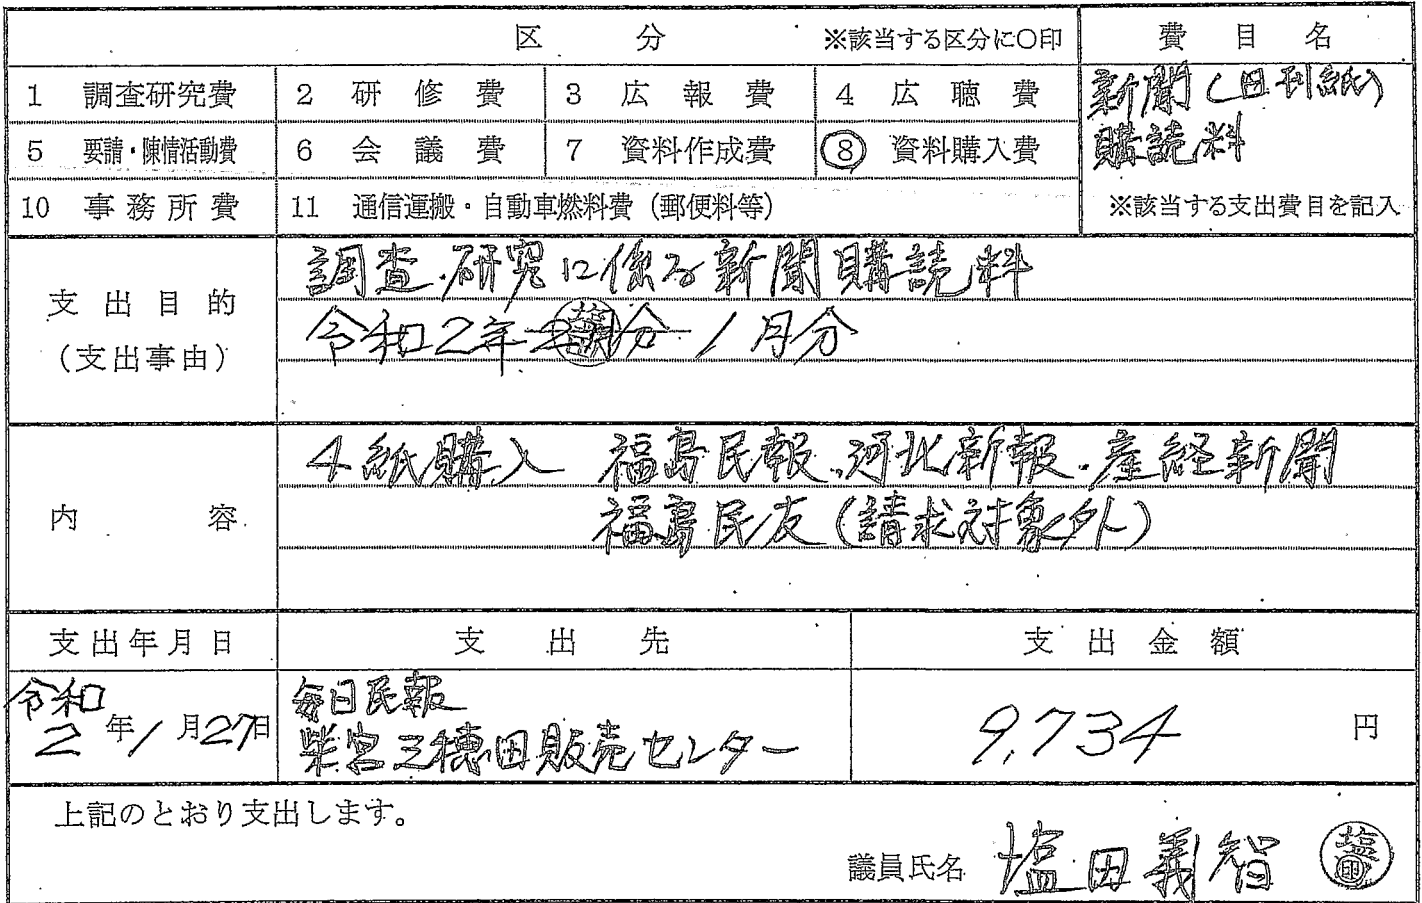 区 分 ※該当する区分に○印 費 目 名
1 調査研究費 2 研 修 費 3 広 報 費 4 広 聴 費
新聞(日刊紙)
購読料
5 要請・陳情活動費 6 会 議 費 7 資料作成費 8 資料購入費
10 事 務 所 費 11 通信運搬・自動車燃料費(郵便料等)
※該当する支出費目を記入
支 出 目 的
(支出事由)
調査研究に係る新聞購読料
令和2年2月分 1月分
内 容
4紙購入 福島民報、河北新報、産経新聞
福島民友(請求対象外)
支出年月日 支 出 先 支 出 金 額
令和
2年1月27日
毎日民報
柴宮三穂田販売センター
9,734 円
上記のとおり支出します。
議員氏名 塩田義智 塩 印